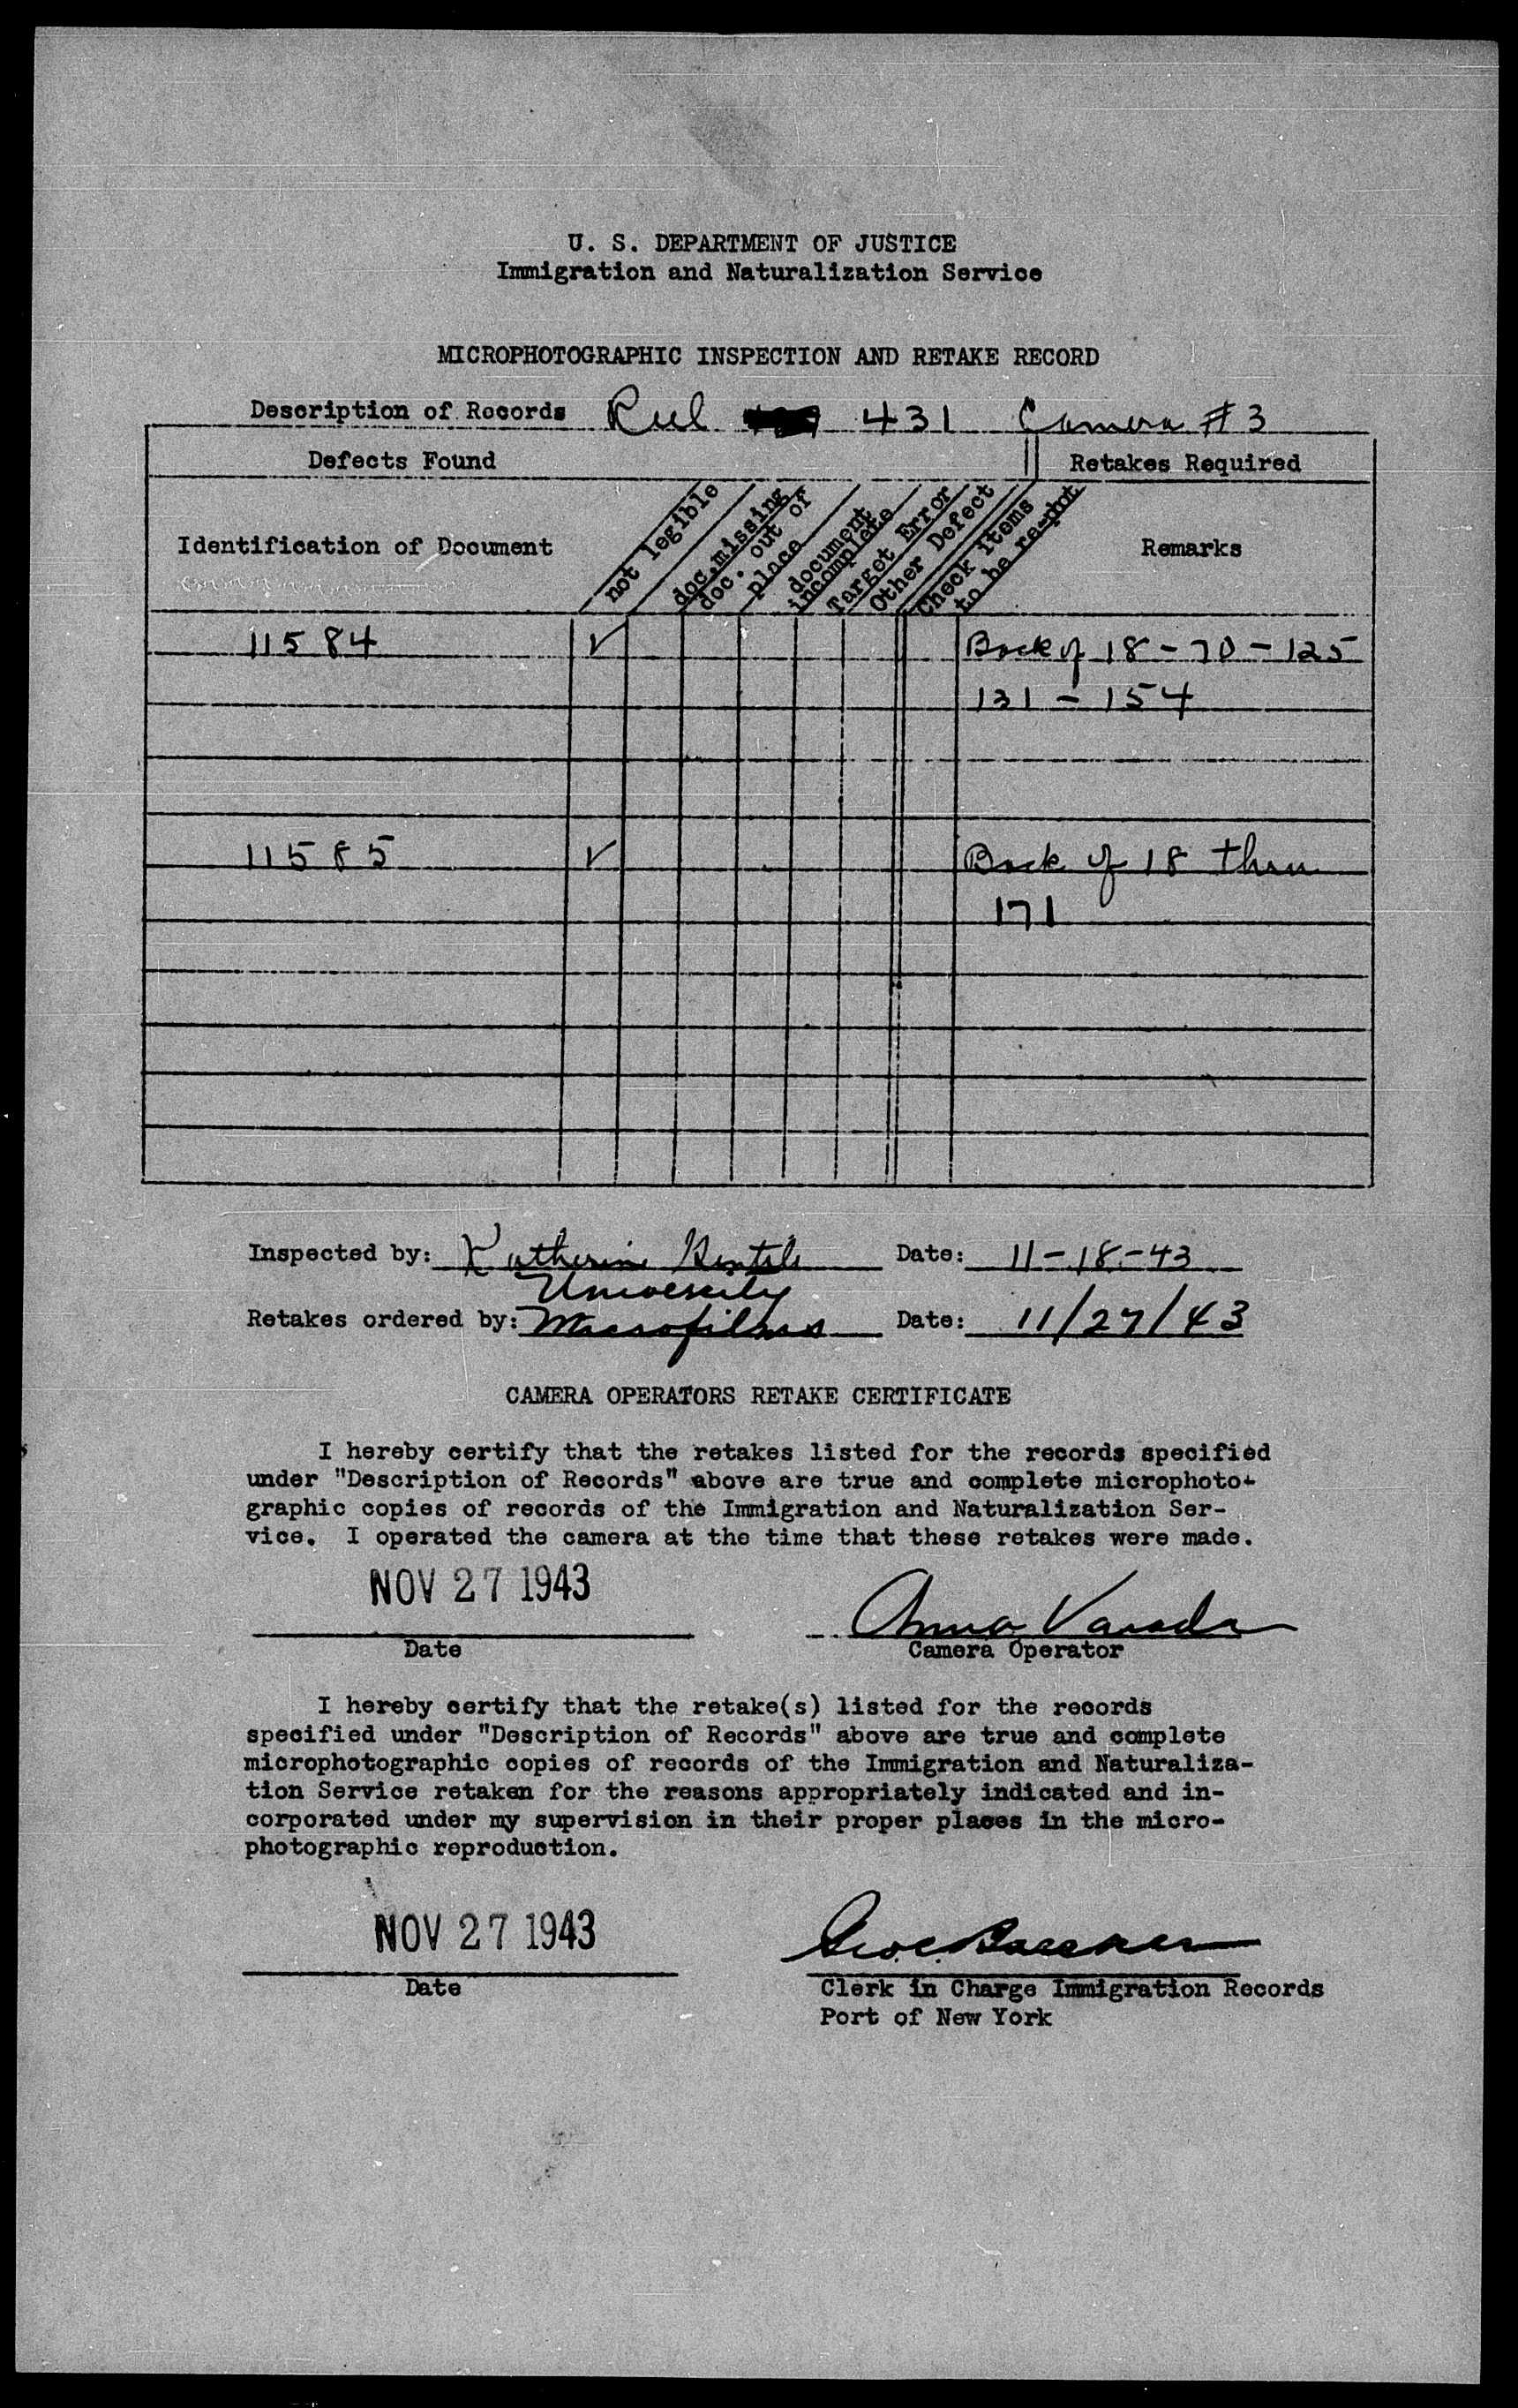 U. S. DEPARTMENT OF JUSTICE
Immigration and Naturalization Service
MICROPHOTOGRAPHIC INSPECTION AND RETAKE RECORD
Description of Records Reel 431 Camera #3
Defects Found
Retakes Required
Identification of Document
not legible
doc. missing
doc. out of
place
document
incomplete
Target Error
Other Defect
Check items
to be re-phot
Remarks
11584 ✓ Back of 18-70-125
131-154
11585 ✓ Back of 18 thru
171
Inspected by: Katherine Date: 11-18-43
University
Retakes ordered by: Microfilms Date: 11/27/43
CAMERA OPERATORS RETAKE CERTIFICATE
I hereby certify that the retakes listed for the records specified
under "Description of Records" above are true and complete microphoto-
graphic copies of records of the Immigration and Naturalization Ser-
vice. I operated the camera at the time that these retakes were made.
NOV 27 1943 Anna
Date Camera Operator
I hereby certify that the retake(s) listed for the records
specified under "Description of Records" above are true and complete
microphotographic copies of records of the Immigration and Naturaliza-
tion Service retaken for the reasons appropriately indicated and in-
corporated under my supervision in their proper places in the micro-
photographic reproduction.
NOV 27 1943
Date Clerk in Charge Immigration Records
Port of New York